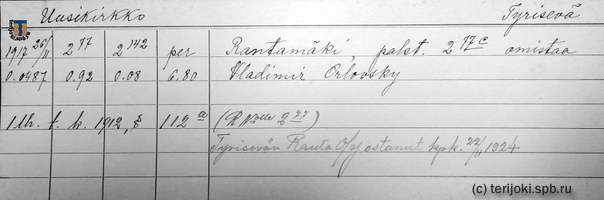 Uusikirkko Tyrisevä
1917 26/11 2 77 2 142 per Rantamäki, palst. 2 77c omistaa
0.0487 0.92 0.08 6.80 Vladimir Orlovsky
1 lh. t. k. 1912, § 112 a (R N:olle 2 77)
Tyrisevän Rauta Oy ostanut kpk. 22/11 1924
(c) terijoki.spb.ru